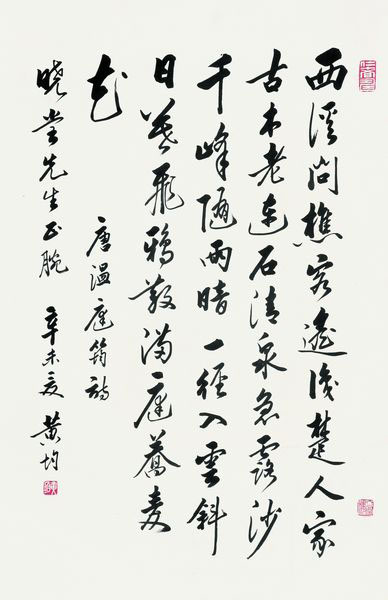 西溪问樵客遥识楚人家
古木老连石清泉急露沙
千峰随雨暗一径入雲斜
日暮飛鴉散满庭蕎麦
花
唐温庭筠诗
晓堂先生正腕 辛未夏 黄均